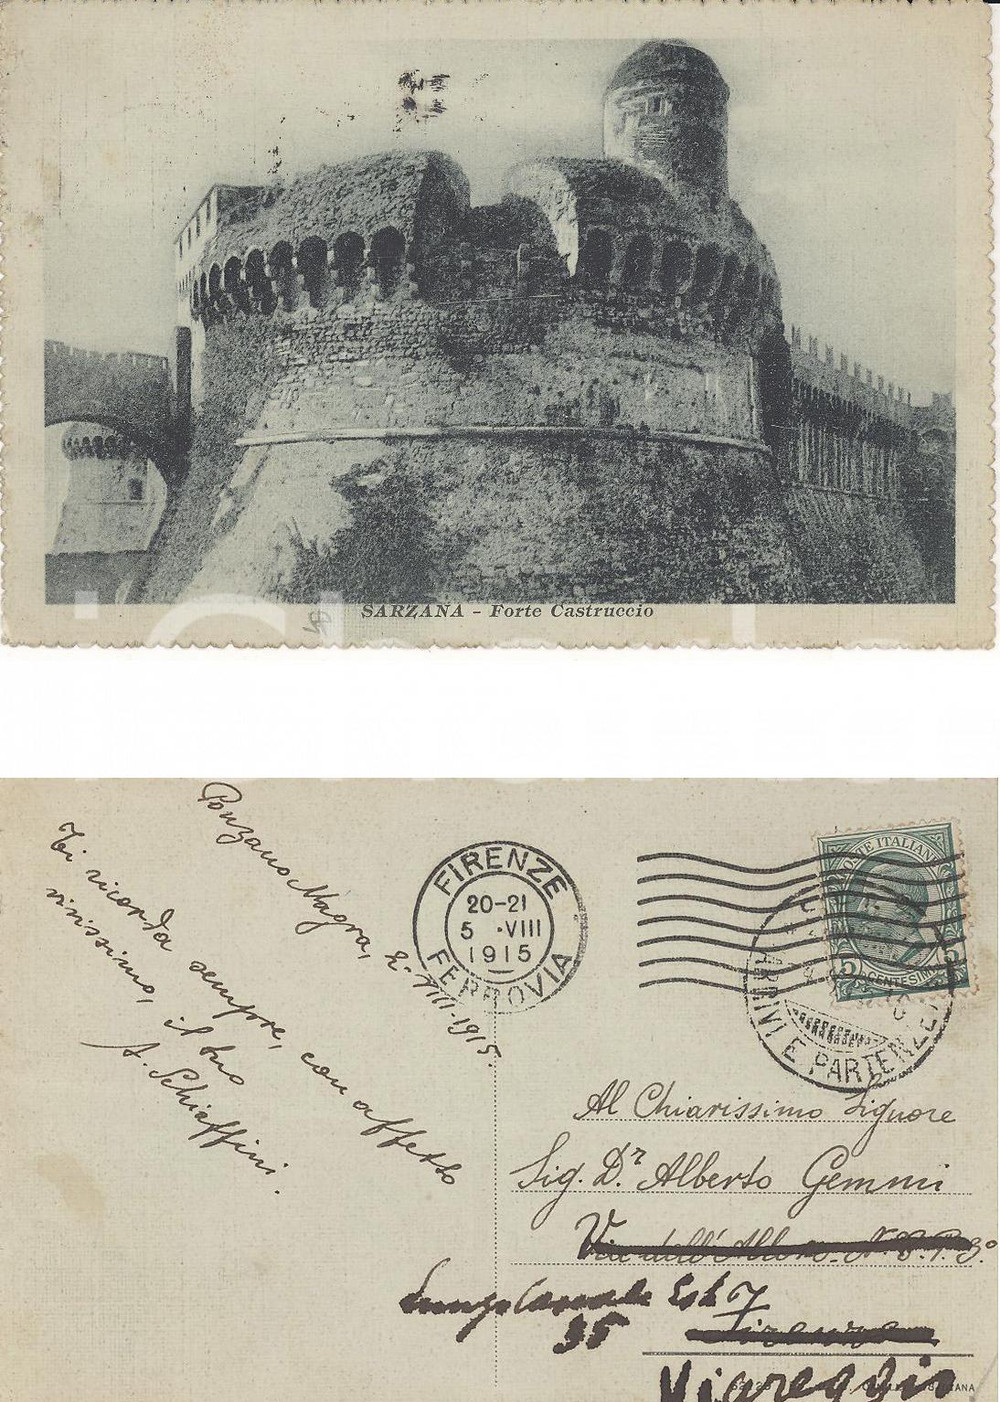 SARZANA - Forte Castruccio
Ponzano Magra, 2-VIII-1915.
Ti ricorda sempre, con affetto
vivissimo,
il tuo
A. Schiaffini.
FIRENZE
20-21
5 ·VIII
1915
FERROVIA
POSTE ITALIANE
5 CENTESIMI 5
ARRIVI E PARTENZE
Al Chiarissimo Signore
Sig. Dr Alberto Gemmi
Via dell'Alloro. N. 8. P. 3°
Lungo Canale Est
35
Firenze
Viareggio